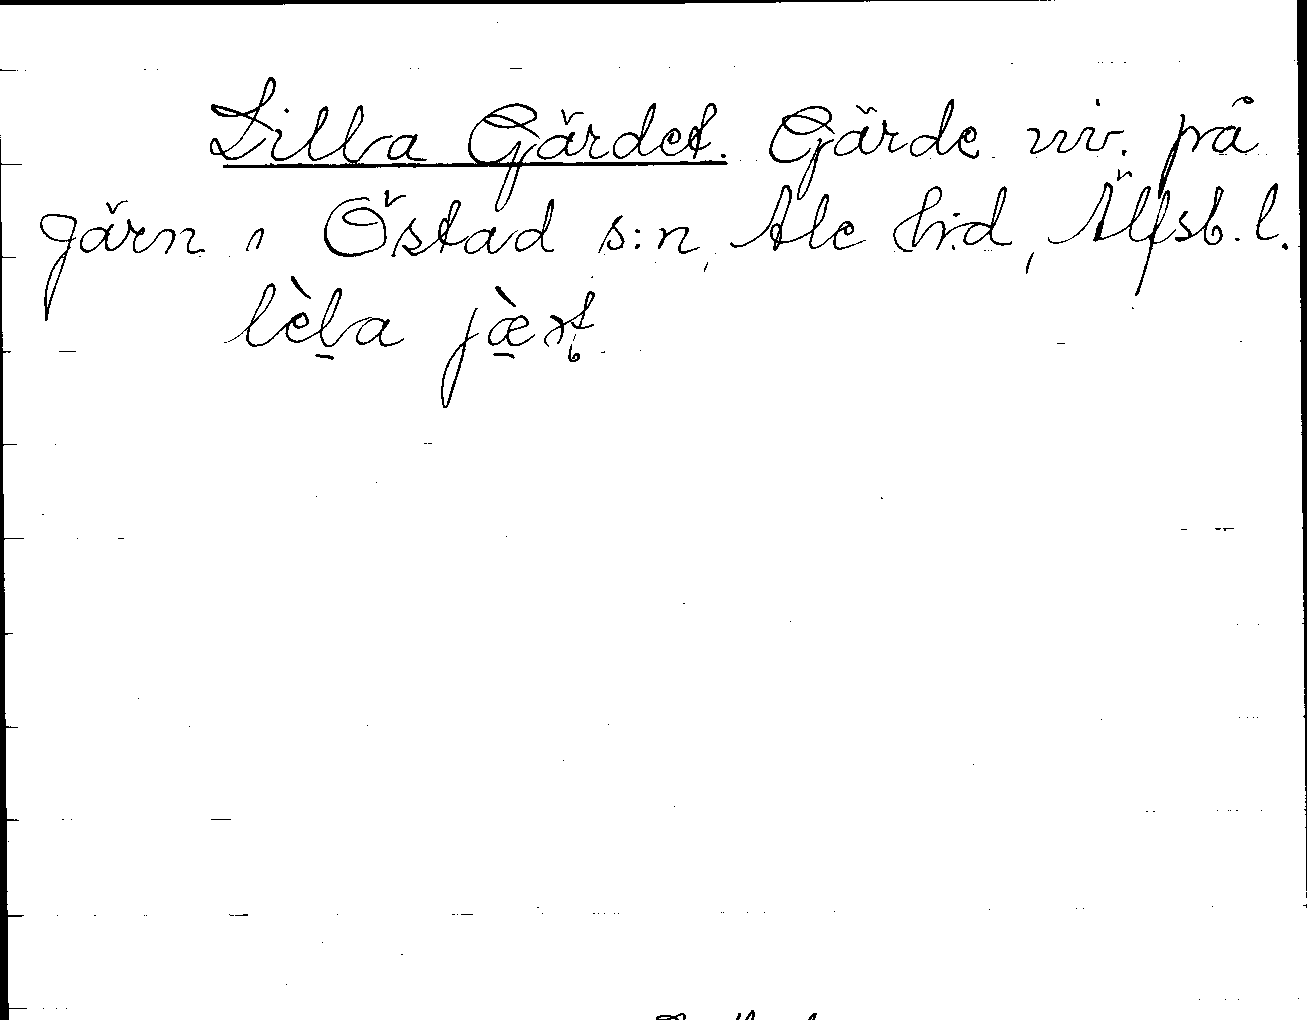 Lilla Gärdet. Gärde nv. på
gärn i Östad s:n, Ale h:d, Älfsb. l.
lèla jært